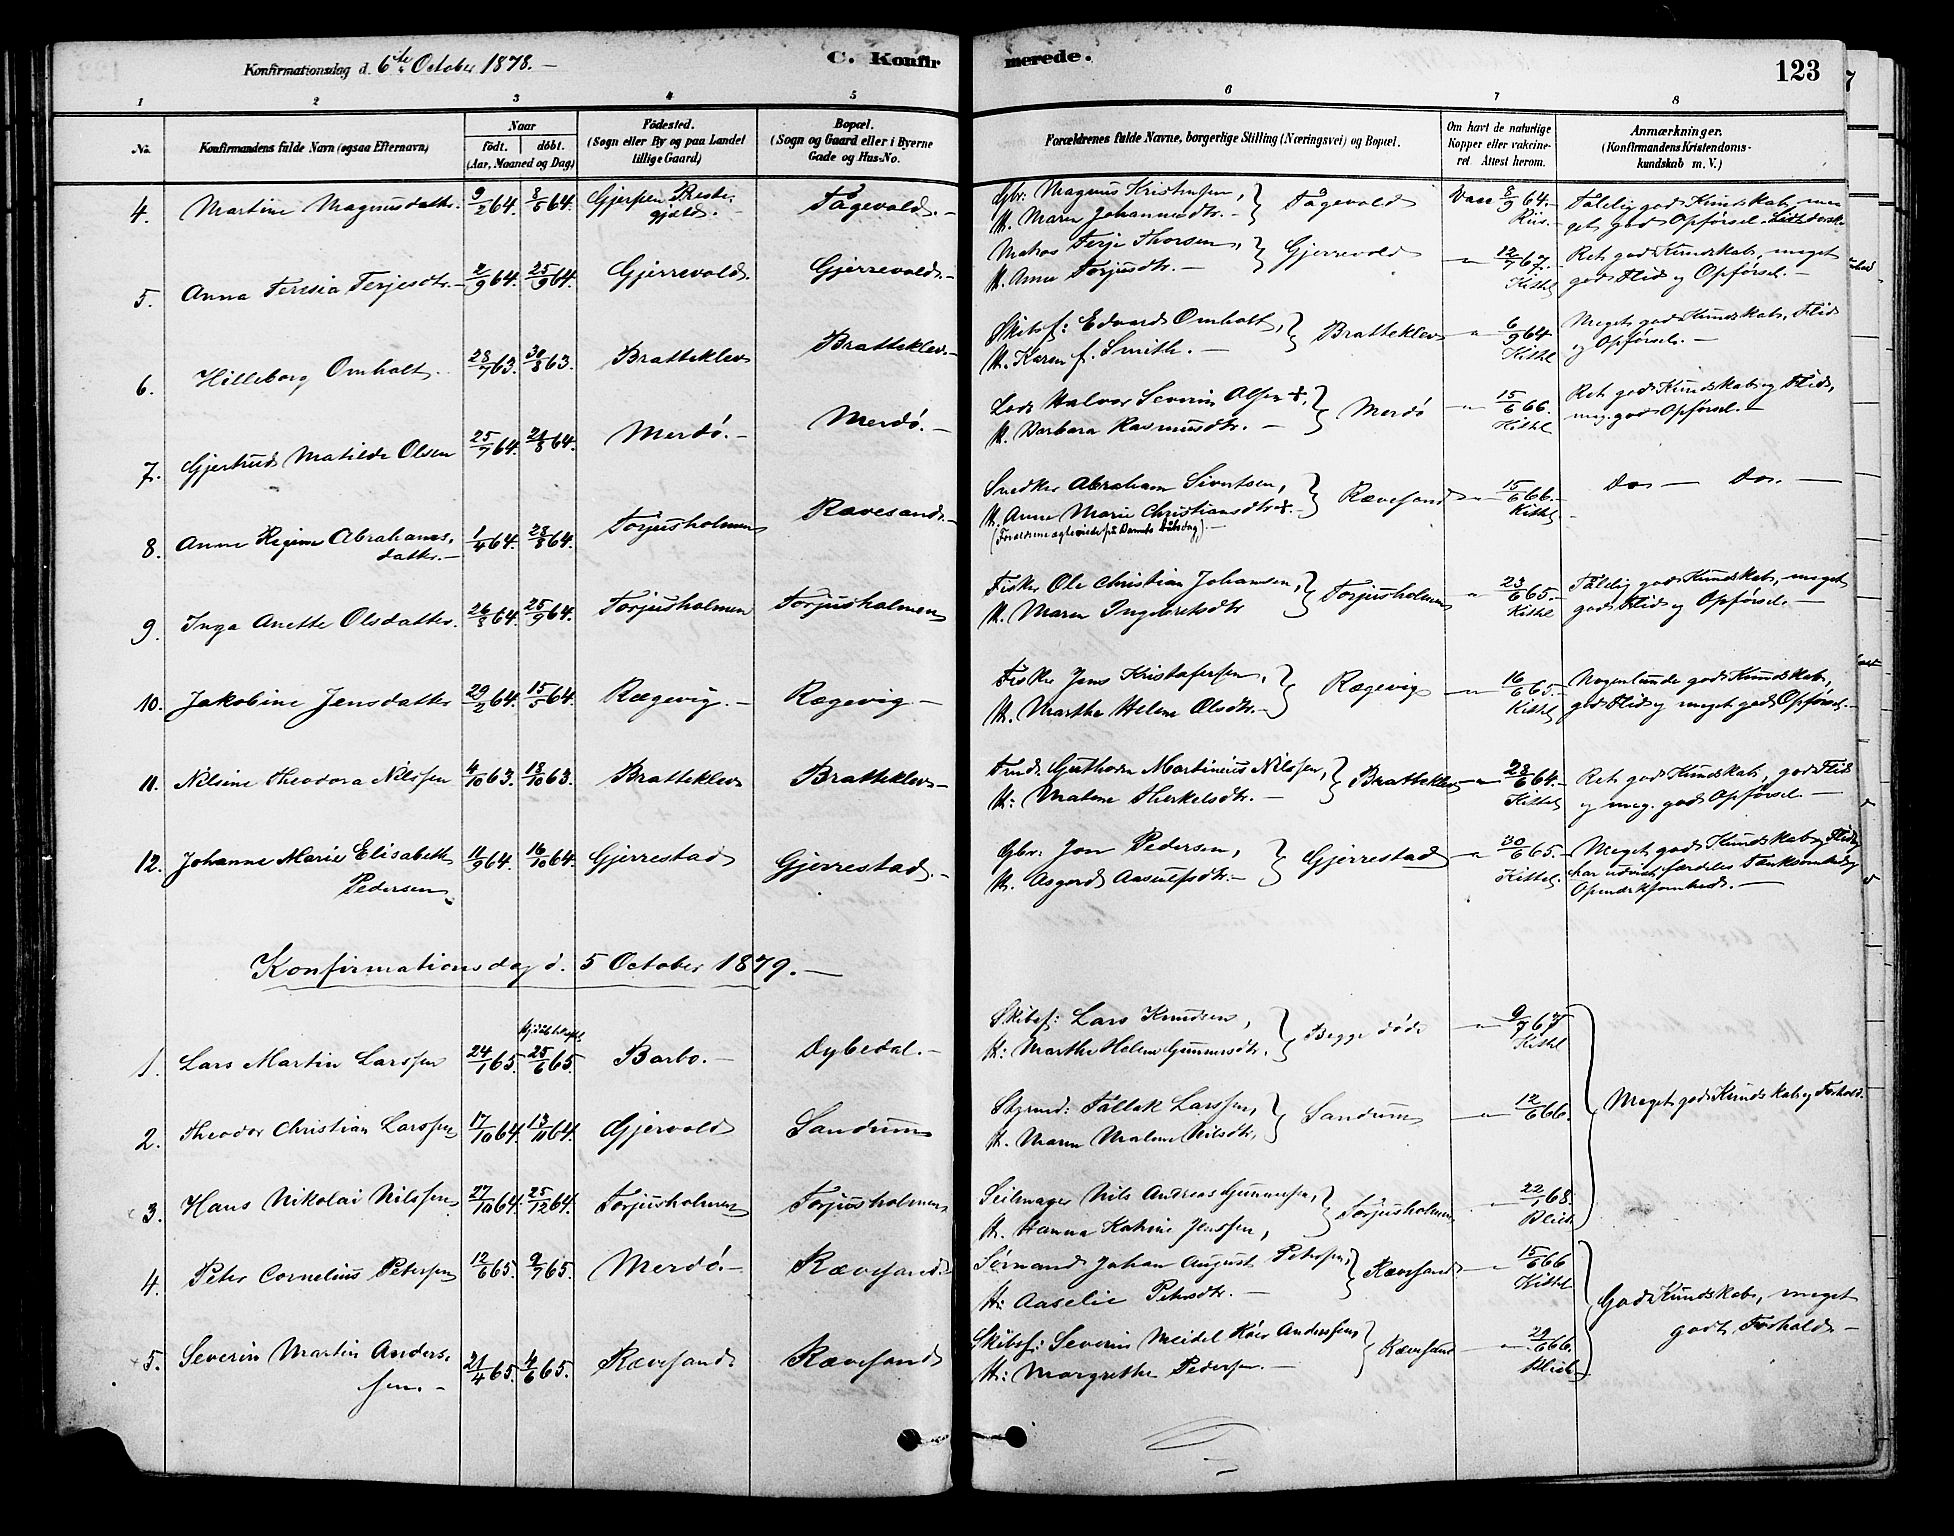 Konfirmationsdag d. 6te October 1878.—
C. Konfir
merede.
123
1 2 3 4 5 6 7 8
No.
Konfirmandens fulde Navn (ogsaa Efternavn)
Naar
födt. döbt.
(Aar, Maaned og Dag)
Födested.
(Sogn eller By og paa Landet
tillige Gaard)
Bopæl.
(Sogn og Gaard eller i Byerne
Gade og Hus-No.
Forældrenes fulde Navne, borgerlige Stilling (Næringsvei) og Bopæl.
Om havt de naturlige
Kopper eller vakcine-
ret Attest herom.
Anmærkninger.
(Konfirmandens Kristendoms-
kundskab m. V.)
4. Martine Magnusdatter. 9/2 64. 8/5 64. Gjerpen Præste-
gjæld.— Tågevold.—
Gbr: Magnus Kristensen,
H. Maren Johannesdtr.— } Tågevold Vacc 8/9 64.—
Riis.— Tålelig god Kundskab, me
get god Opførsel.
5. Anna Teresia Terjesdtr.— 2/9 64. 25/9 64. Gjerrevold. Gjerrevold.—
Matros Terje Thorsen,
H. Anne Torjusdtr.— } Gjerrevold " 12/7 67.—
Kittel Ret god Kundskab, meget
god Flid og Opførsel.—
6. Hilleborg Omholt. 28/7 63. 30/8 63. Bratteklev Bratteklev.—
Skibsf: Edvard Omholt,
H. Karen f. Smith.— } Bratteklev " 6/9 64
Kittel Meget god Kundskab, Flid
og Opførsel.—
7. Gjertrud Matilde Olsen 25/7 64. 21/8 64. Merdö.— Merdö.—
Lods Halvor Severin Olsen +,
H. Barbara Rasmusdtr.— } Merdö " 15/6 66.
Kittel Ret god Kundskab og Flid,
meg. god Opførsel.—
8. Anne Regine Abrahams-
datter.— 1/4 64. 28/8 64. Torjusholmen Rævesand.—
Snedker Abraham Sivertsen,
H. Anne Marie Christiansdtr +.
(Forældrene ægteviede på Barnets Dåbsdag).— } Rævesand " 15/6 66.—
Kittel. Do — Do. —
9. Inga Anette Olsdatter. 26/8 64. 25/9 64. Torjusholmen Torjusholmen
Fisker Ole Christian Johannsen,
H. Maren Ingebretsdtr } Torjusholmen " 23/6 65.—
Kittel Tålelig god Kundskab, meget
god Flid og Opførsel.—
10. Jakobine Jensdatter 29/2 64. 15/5 64. Rægevig.— Rægevig —
Fisker Jens Kristofersen,
H. Marthe Helene Olsdtr.— } Rægevig " 16/6 65.—
Kittel Nogenlunde god Kundskab,
god Flid og meget god Opførsel.—
11. Nilsine Theodora Nilssen 4/10 63. 18/10 63. Bratteklev Bratteklev—
Guthorm Martinius Nilssen,
H: Malene Therkelsdtr.— } Bratteklev " 28/6 64.—
Kittel Ret god Kundskab, god Flid
og meg. god Opførsel.—
12. Johanne Marie Elisabeth
Pedersen 11/9 64. 16/10 64. Gjerrestad Gjerrestad.—
Gbr. Jon Pedersen,
H. Asgerd Aasulfsdtr.— } Gjerrestad " 30/6 65.—
Kittel. Meget god Kundskab, Flid
har udvist særdeles Tænksomhed og
Opmærksomhed.—
Konfirmationsdag d. 5 October 1879.—
1. Lars Martin Larssen 24/1 65. 25/6 65. Barbo.— Dybedal.—
Skibsf: Lars Knudsen,
H: Marthe Helene Gunnersdtr. } Begge døde " 9/7 67
Kittel
2. Theodor Christian Larssen 17/10 64. 13/11 64. Gjervold Sandum
Styrmd: Tallak Larssen,
H. Maren Malene Nilsdtr, } Sandum " 12/6 66.
Meget god Kundskab og Forhold.
3. Hans Nikolai Nilssen 27/10 64. 25/12 64. Torjusholmen Torjusholmen
Seilmager Nils Andreas Gunnersen,
H. Hanna Katrine Jenssen, } Torjusholmen " 22/1 68.
4. Peter Cornelius Petersen 12/6 65. 9/7 65. Merdö.— Rævesand.
Sørmand Johan August Petersen,
H: Aaselie Petersdtr.— } Rævesand " 15/6 66
Kittel
God Kundskab, meget
godt Forhold.—
5. Severin Martin Anders-
sen.— 21/4 65. 4/6 65. Rævesand Rævesand
Skibsf: Severin Meidel Anderssen,
H: Margrethe Pedersen.— } Rævesand " 29/6 66.